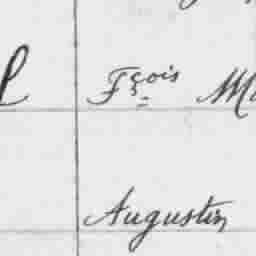 Fçois
Augustin